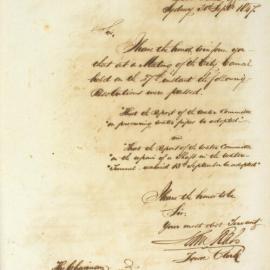 Sydney 30 Septr 1847.
Sir,
I have the honor to inform you
that at a Meeting of the City Council
held on the 27th instant the following
Resolutions were passed.
"That the Report of the Water Committee
"on procuring water pipes be adopted"—
"That the Report of the Water Committee
"on the repair of a Shaft in the Water
"Tunnel - dated 13th September be adopted"
I have the honor to be
Sir,
Your most obdt Servant
Town Clerk
The Chairman